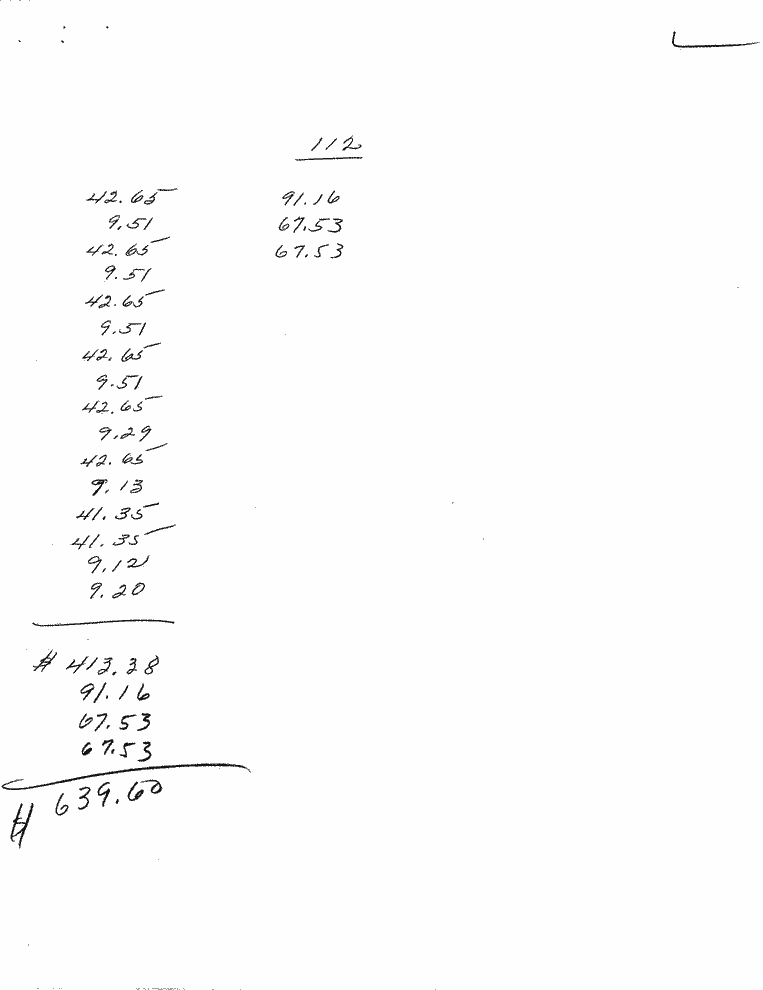 112
42.65 91.16
9.51 67.53
42.65 67.53
9.51
42.65
9.51
42.65
9.51
42.65
9.29
42.65
9.13
41.35
41.35
9.12
9.20
# 413.38
91.16
67.53
67.53
# 639.60